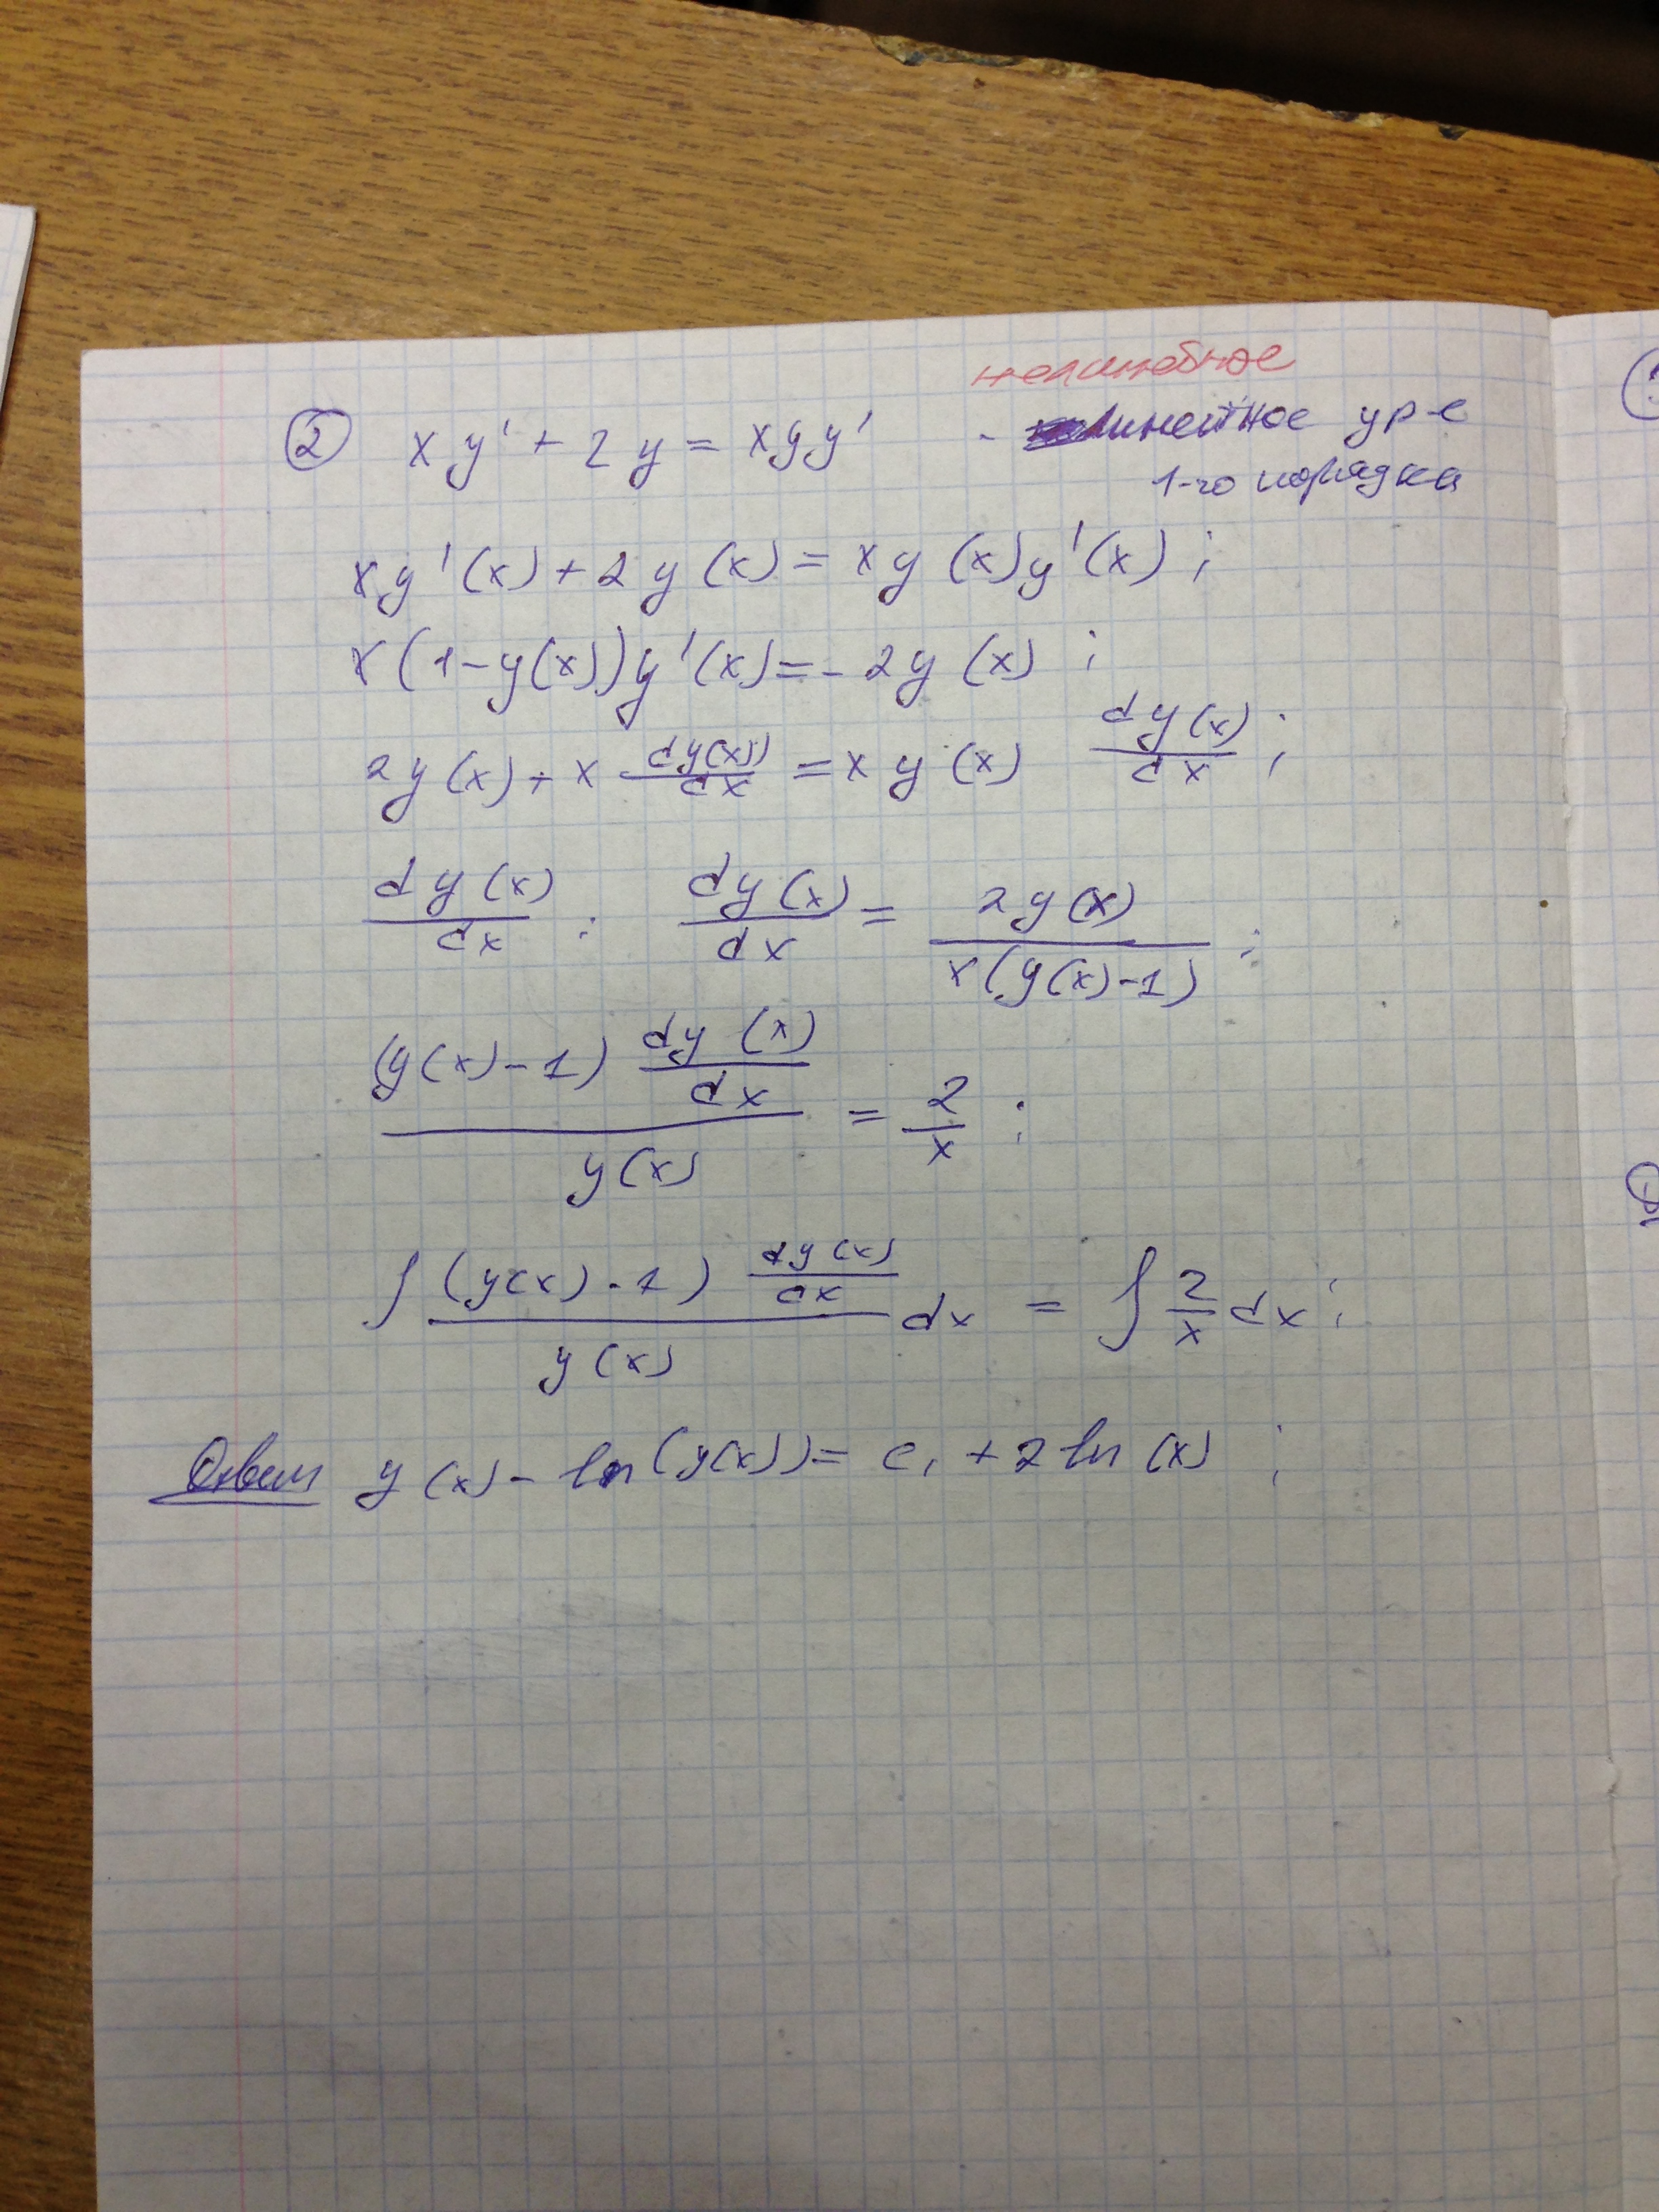 нелинейное
② xy' + 2y = xyy' - линейное ур-е
1-го порядка
xy'(x)+2y(x)=xy(x)y'(x);
x(1-y(x))y'(x)=-2y(x);
2y(x)+x dy(x)/dx =xy(x) dy(x)/dx;
dy(x)/dx : dy(x)/dx = 2y(x)/x(y(x)-1);
(y(x)-1) dy(x)/dx / y(x) = 2/x;
∫ (y(x)-1) dy(x)/dx / y(x) dx = ∫ 2/x dx;
Ответ y(x)-ln(y(x))= c₁ +2ln(x);